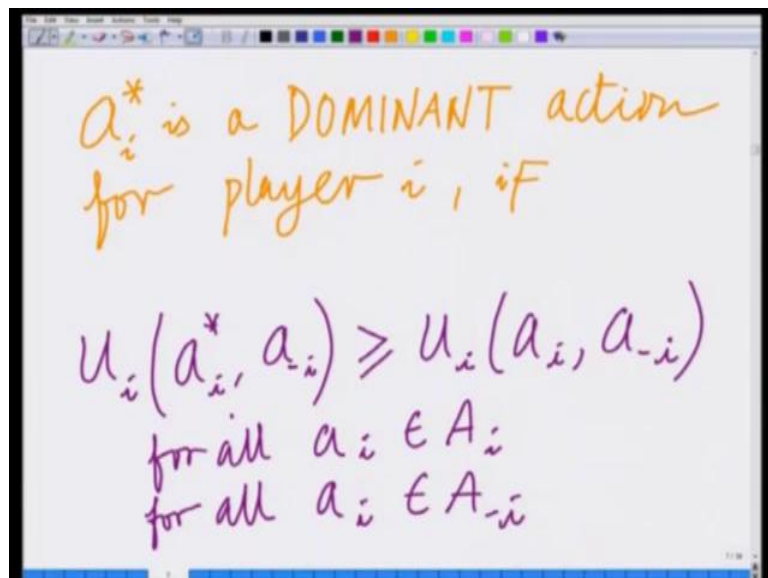 File Edit View Insert Actions Tools Help
a_i^* is a DOMINANT action
for player i, iF
u_i(a_i^*, a_{-i}) ⩾ u_i(a_i, a_{-i})
for all a_i ∈ A_i
for all a_i ∈ A_{-i}